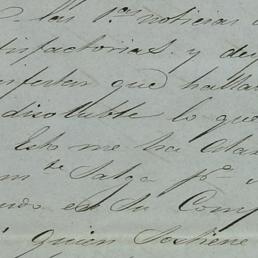 las 1.as noticias
tisfactorias. y de
ifestan que halla
disoluble lo que
Esto me ha ala
Salga p.a
do el Su Com
Quien Sostiene